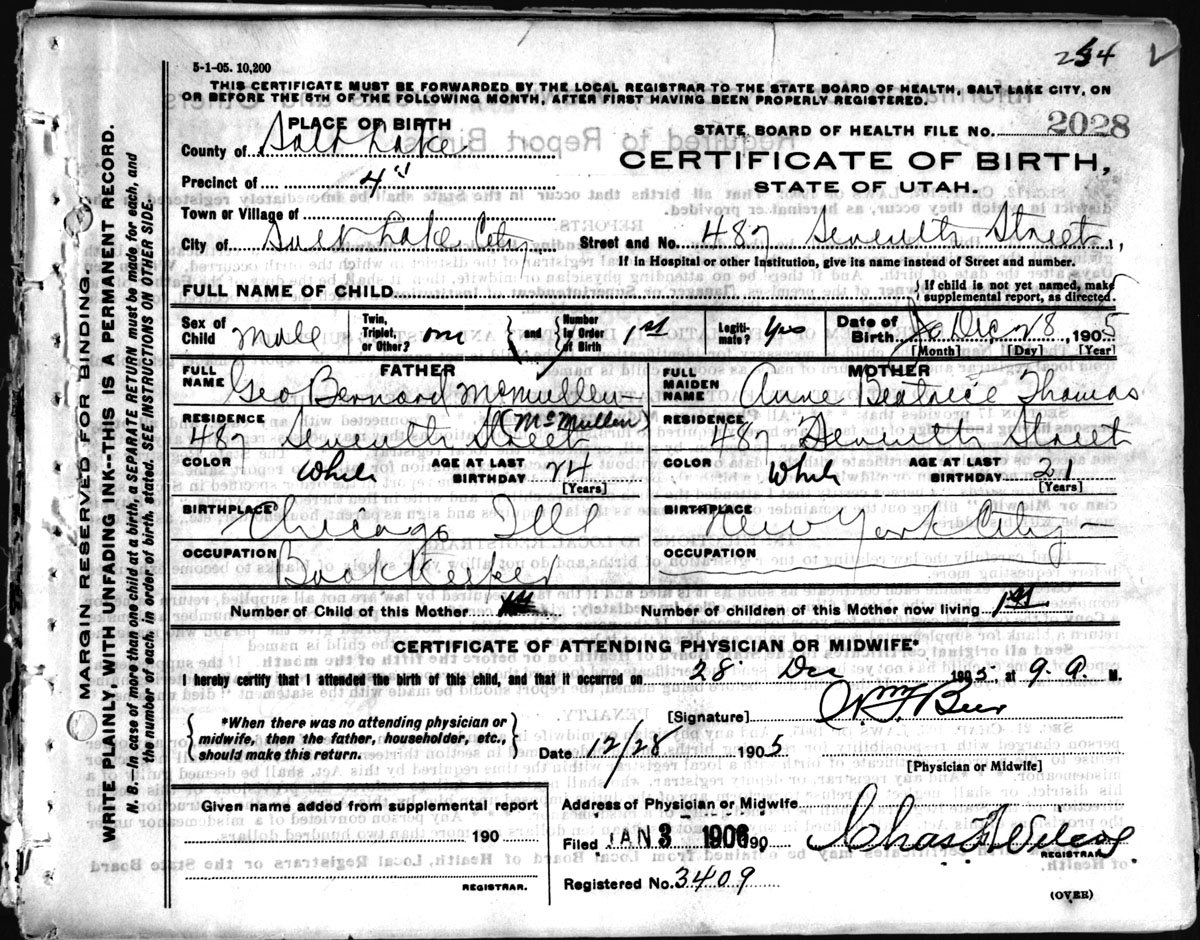 254
5-1-05. 10,200
THIS CERTIFICATE MUST BE FORWARDED BY THE LOCAL REGISTRAR TO THE STATE BOARD OF HEALTH, SALT LAKE CITY, ON
OR BEFORE THE 5TH OF THE FOLLOWING MONTH, AFTER FIRST HAVING BEEN PROPERLY REGISTERED.
PLACE OF BIRTH
STATE BOARD OF HEALTH FILE NO. 2028
County of Salt Lake
CERTIFICATE OF BIRTH,
Precinct of 4"
STATE OF UTAH.
Town or Village of
City of Salt Lake City Street and No. 487 Seventh Street,
If in Hospital or other Institution, give its name instead of Street and number.
FULL NAME OF CHILD { If child is not yet named, make
supplemental report, as directed.
Sex of Child Male Twin, Triplet, or Other? one { and } Number in Order of Birth 1st Legitimate? Yes Date of Birth Dec 28, 1905
[Month] [Day] [Year]
FATHER MOTHER
FULL NAME Geo Bernard McMullen FULL MAIDEN NAME Anne Beatrice Thomas
(McMullen)
RESIDENCE 487 Seventh Street RESIDENCE 487 Seventh Street
COLOR White AGE AT LAST BIRTHDAY 24 [Years] COLOR White AGE AT LAST BIRTHDAY 21 [Years]
BIRTHPLACE Chicago Ill BIRTHPLACE New York City
OCCUPATION Book Keeper OCCUPATION
Number of Child of this Mother 1st Number of children of this Mother now living 1st
CERTIFICATE OF ATTENDING PHYSICIAN OR MIDWIFE*
I hereby certify that I attended the birth of this child, and that it occurred on 28 Dec 1905, at 9. A. M.
{ *When there was no attending physician or
midwife, then the father, householder, etc.,
should make this return. }
[Signature] Wm F Beer
Date 12/28 1905
[Physician or Midwife]
Given name added from supplemental report
190
REGISTRAR.
Address of Physician or Midwife
Filed JAN 3 1906 190 Chas F Wilcox
REGISTRAR.
Registered No. 3409
(OVER)
MARGIN RESERVED FOR BINDING.
WRITE PLAINLY, WITH UNFADING INK--THIS IS A PERMANENT RECORD.
N. B.--In case of more than one child at a birth, a SEPARATE RETURN must be made for each, and
the number of each, in order of birth, stated. SEE INSTRUCTIONS ON OTHER SIDE.